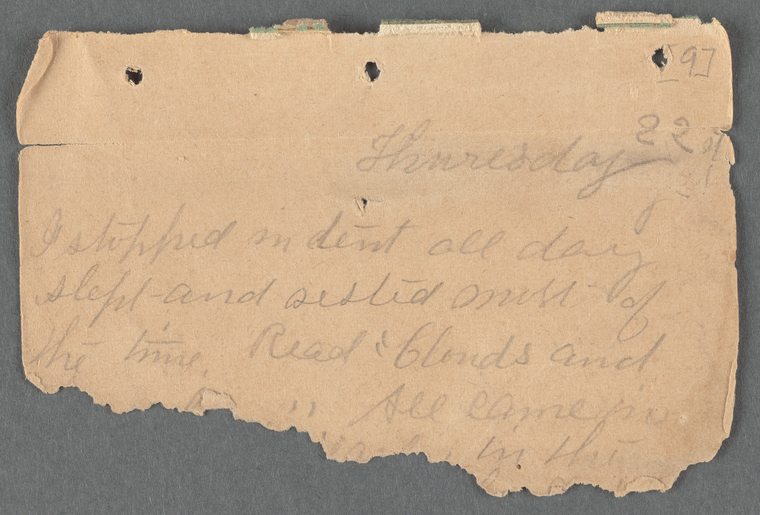 [9]
Thuresday 22
I stopped in tent all day
slept and rested most of
the time. Read "Clouds and
" All came in
in the